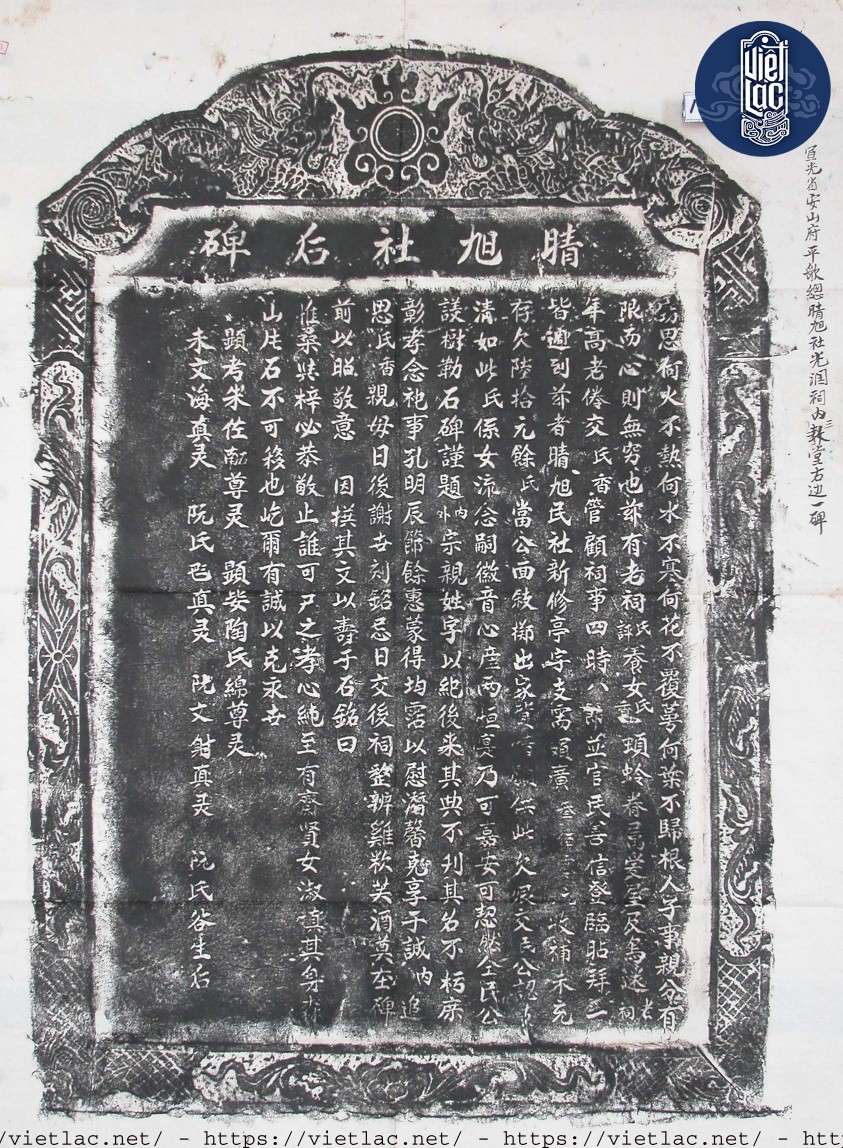 晴旭社后碑
思何火不熱何水不寒何花不覆萼何葉不歸根人子事親分有
限而心則無窮也茲有老祠氏評養女氏香頭蛉眷屬愛屋及烏迷老祠
年高老倦交氏香管顧祠事四時八節並官民善信登臨貼拜三
皆適到茲者晴旭民社新修亭宇支寫項廣收補未充
存欠陸拾元餘氏當公面敍擲出家貲供此欠很交民公認
清如此氏係女流念嗣徽音心産兩恒真乃可嘉安可恝然全民公
議樹勒石碑謹題內外宗親姓字以紀後來其典不刊其名不朽庶
彰孝念祀事孔明辰節餘惠蒙得均霑以慰潘馨克享于誠內追
思氏香親毋日後謝世刻銘忌日交後祠整辦雞炊芙酒奠在碑
前以昭敬意 因摸其文以壽于石銘曰
惟桑與梓必恭敬止誰可尸之孝心純至有齋賢女淑慎其身
山片石不可移也屹爾有誠以克永世
顯考朱佐尊灵 顯妣陶氏綿尊灵
朱文海真灵 阮氏真灵 阮文真灵 阮氏谷生后
宣光省安山府平歆總晴旭社光潤祠內三報堂右边一碑
Việt Lạc
://vietlac.net/ - https://vietlac.net/ - https://vietlac.net/ - https:/